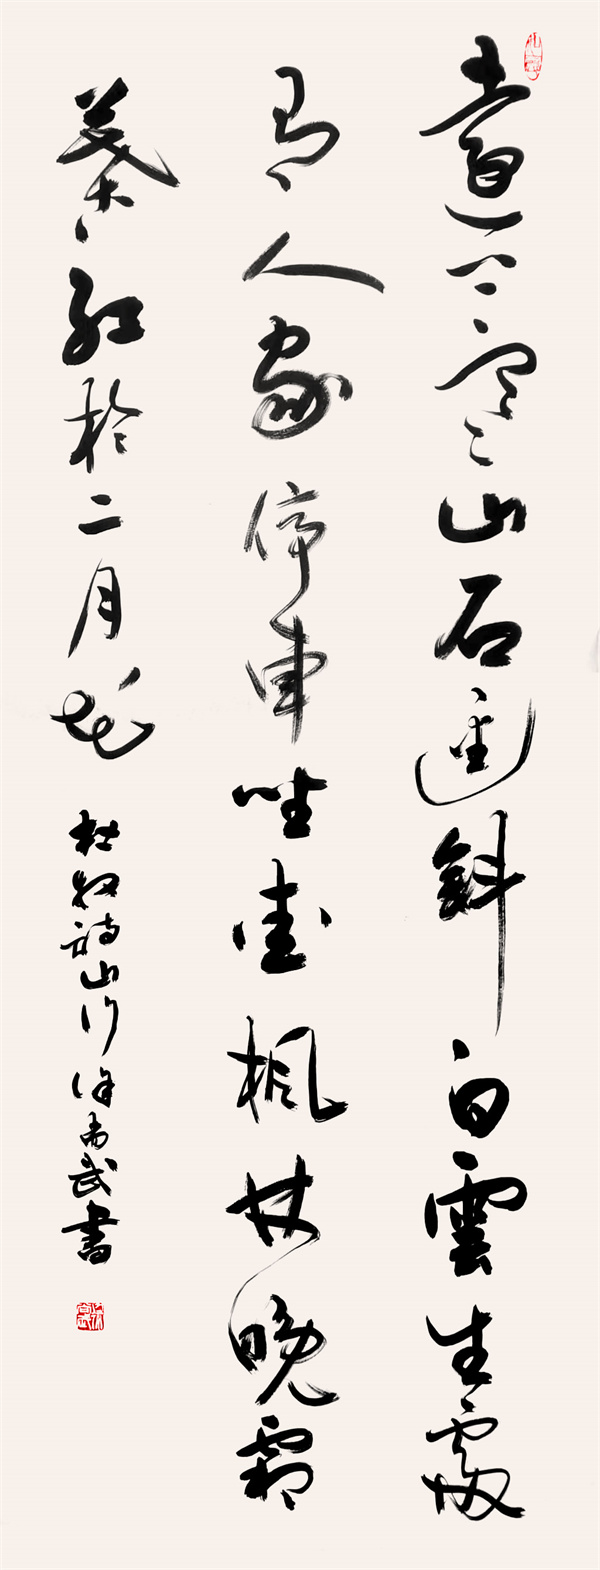 遠上寒山石逕斜白雲生處
有人家停車坐愛楓林晚霜
葉紅於二月花
杜牧詩山行徐尚武書